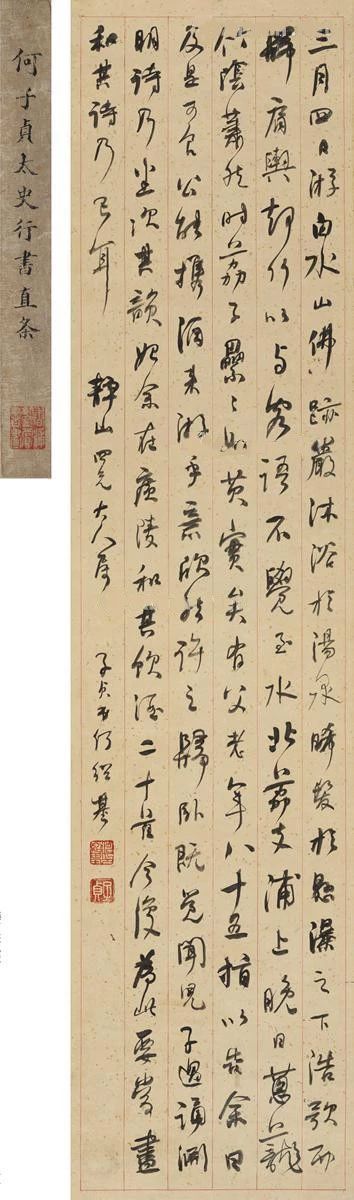 何子貞太史行書直条
三月四日游白水山佛跡巖沐浴於湯泉晞髮於懸瀑之下浩歌而
歸肩輿卻行以与客語不覺至水北荔支浦上晚日蔥蘢
竹陰蕭然時荔子纍〻如芡實矣有父老年八十五指以告余曰
及是可食公能攜酒來游乎意欣然許之歸卧既覺聞兒子過誦淵
明詩乃悉次其韻始余在廣陵和其飲酒二十首今復為此要當盡
和其詩乃已耳
靜山四兄大人屬
子貞弟何紹基